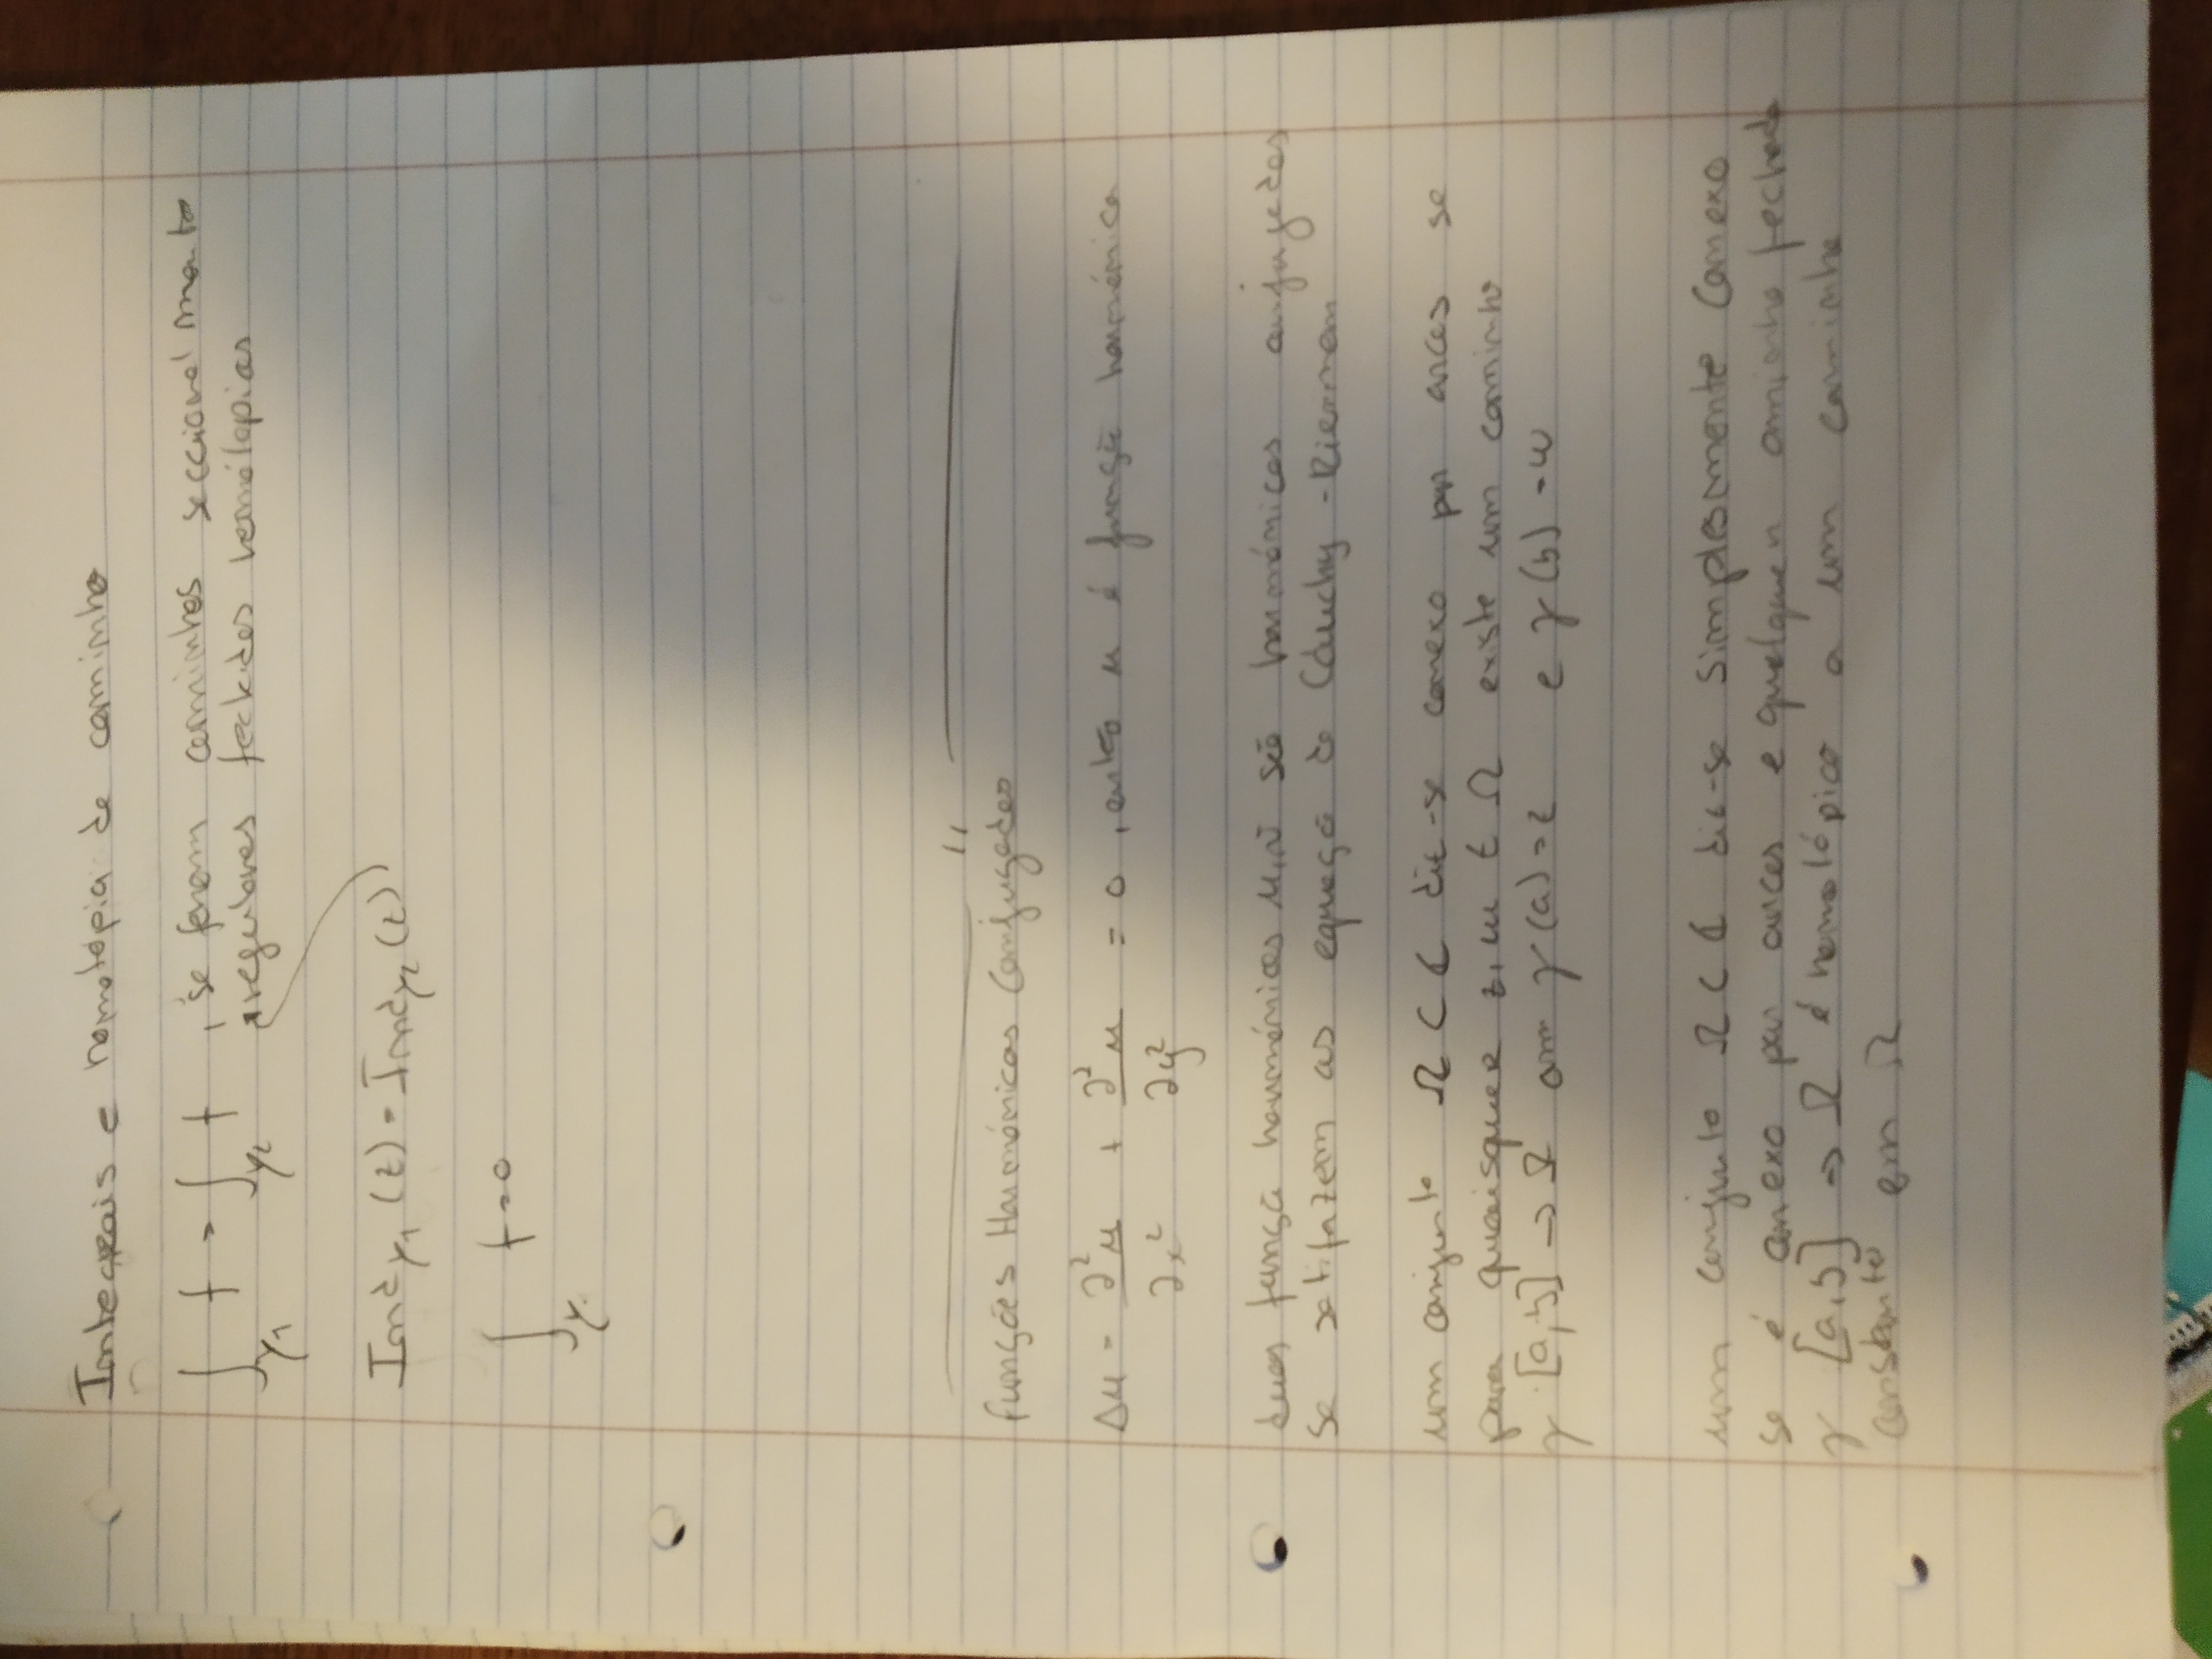 Integrais e homotopia de caminho
∫γ1 f = ∫γ2 f , se forem caminhos seccionalmente
regulares fechados homotópicas
Ind γ1 (z) = Ind γ2 (z)
∫γ f = 0
Funções Harmónicas Conjugados
Δu = ∂²u/∂x² + ∂²u/∂y² = 0 , então u é função harmónica
duas função harmónicas u,v são harmónicas conjugadas
se satifazem as equaçõ de Cauchy-Riemman
um conjunto Ω ⊂ ℂ diz-se conexo por arcos se
para quaisquer z, w ∈ Ω existe um caminho
γ: [a,b] → Ω com γ(a)=z e γ(b)=w
um conjunto Ω ⊂ ℂ diz-se simplesmente conexo
se é conexo por arcos e qualquer caminho fechado
γ [a,b] → Ω é homotópico a um caminho
constante em Ω